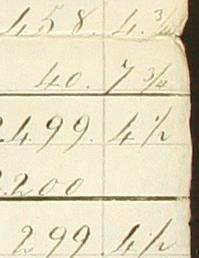 458. 4. 3/4
40. 7 3/4
2499. 4 1/2
2200
299. 4 1/2